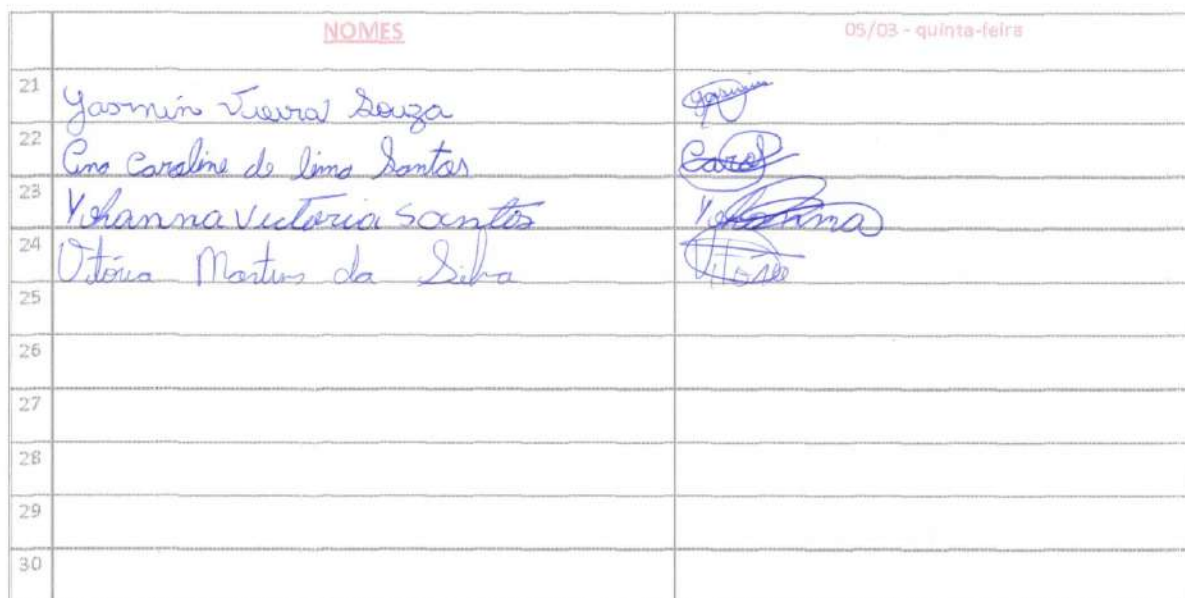 NOMES 05/03 - quinta-feira
21 Yasmin Vieira Souza Yasmin
22 Ana Caroline de lima Santos Carol
23 Yohanna Victoria Santos Yohanna
24 Vitória Martins da Silva Vitória
25
26
27
28
29
30